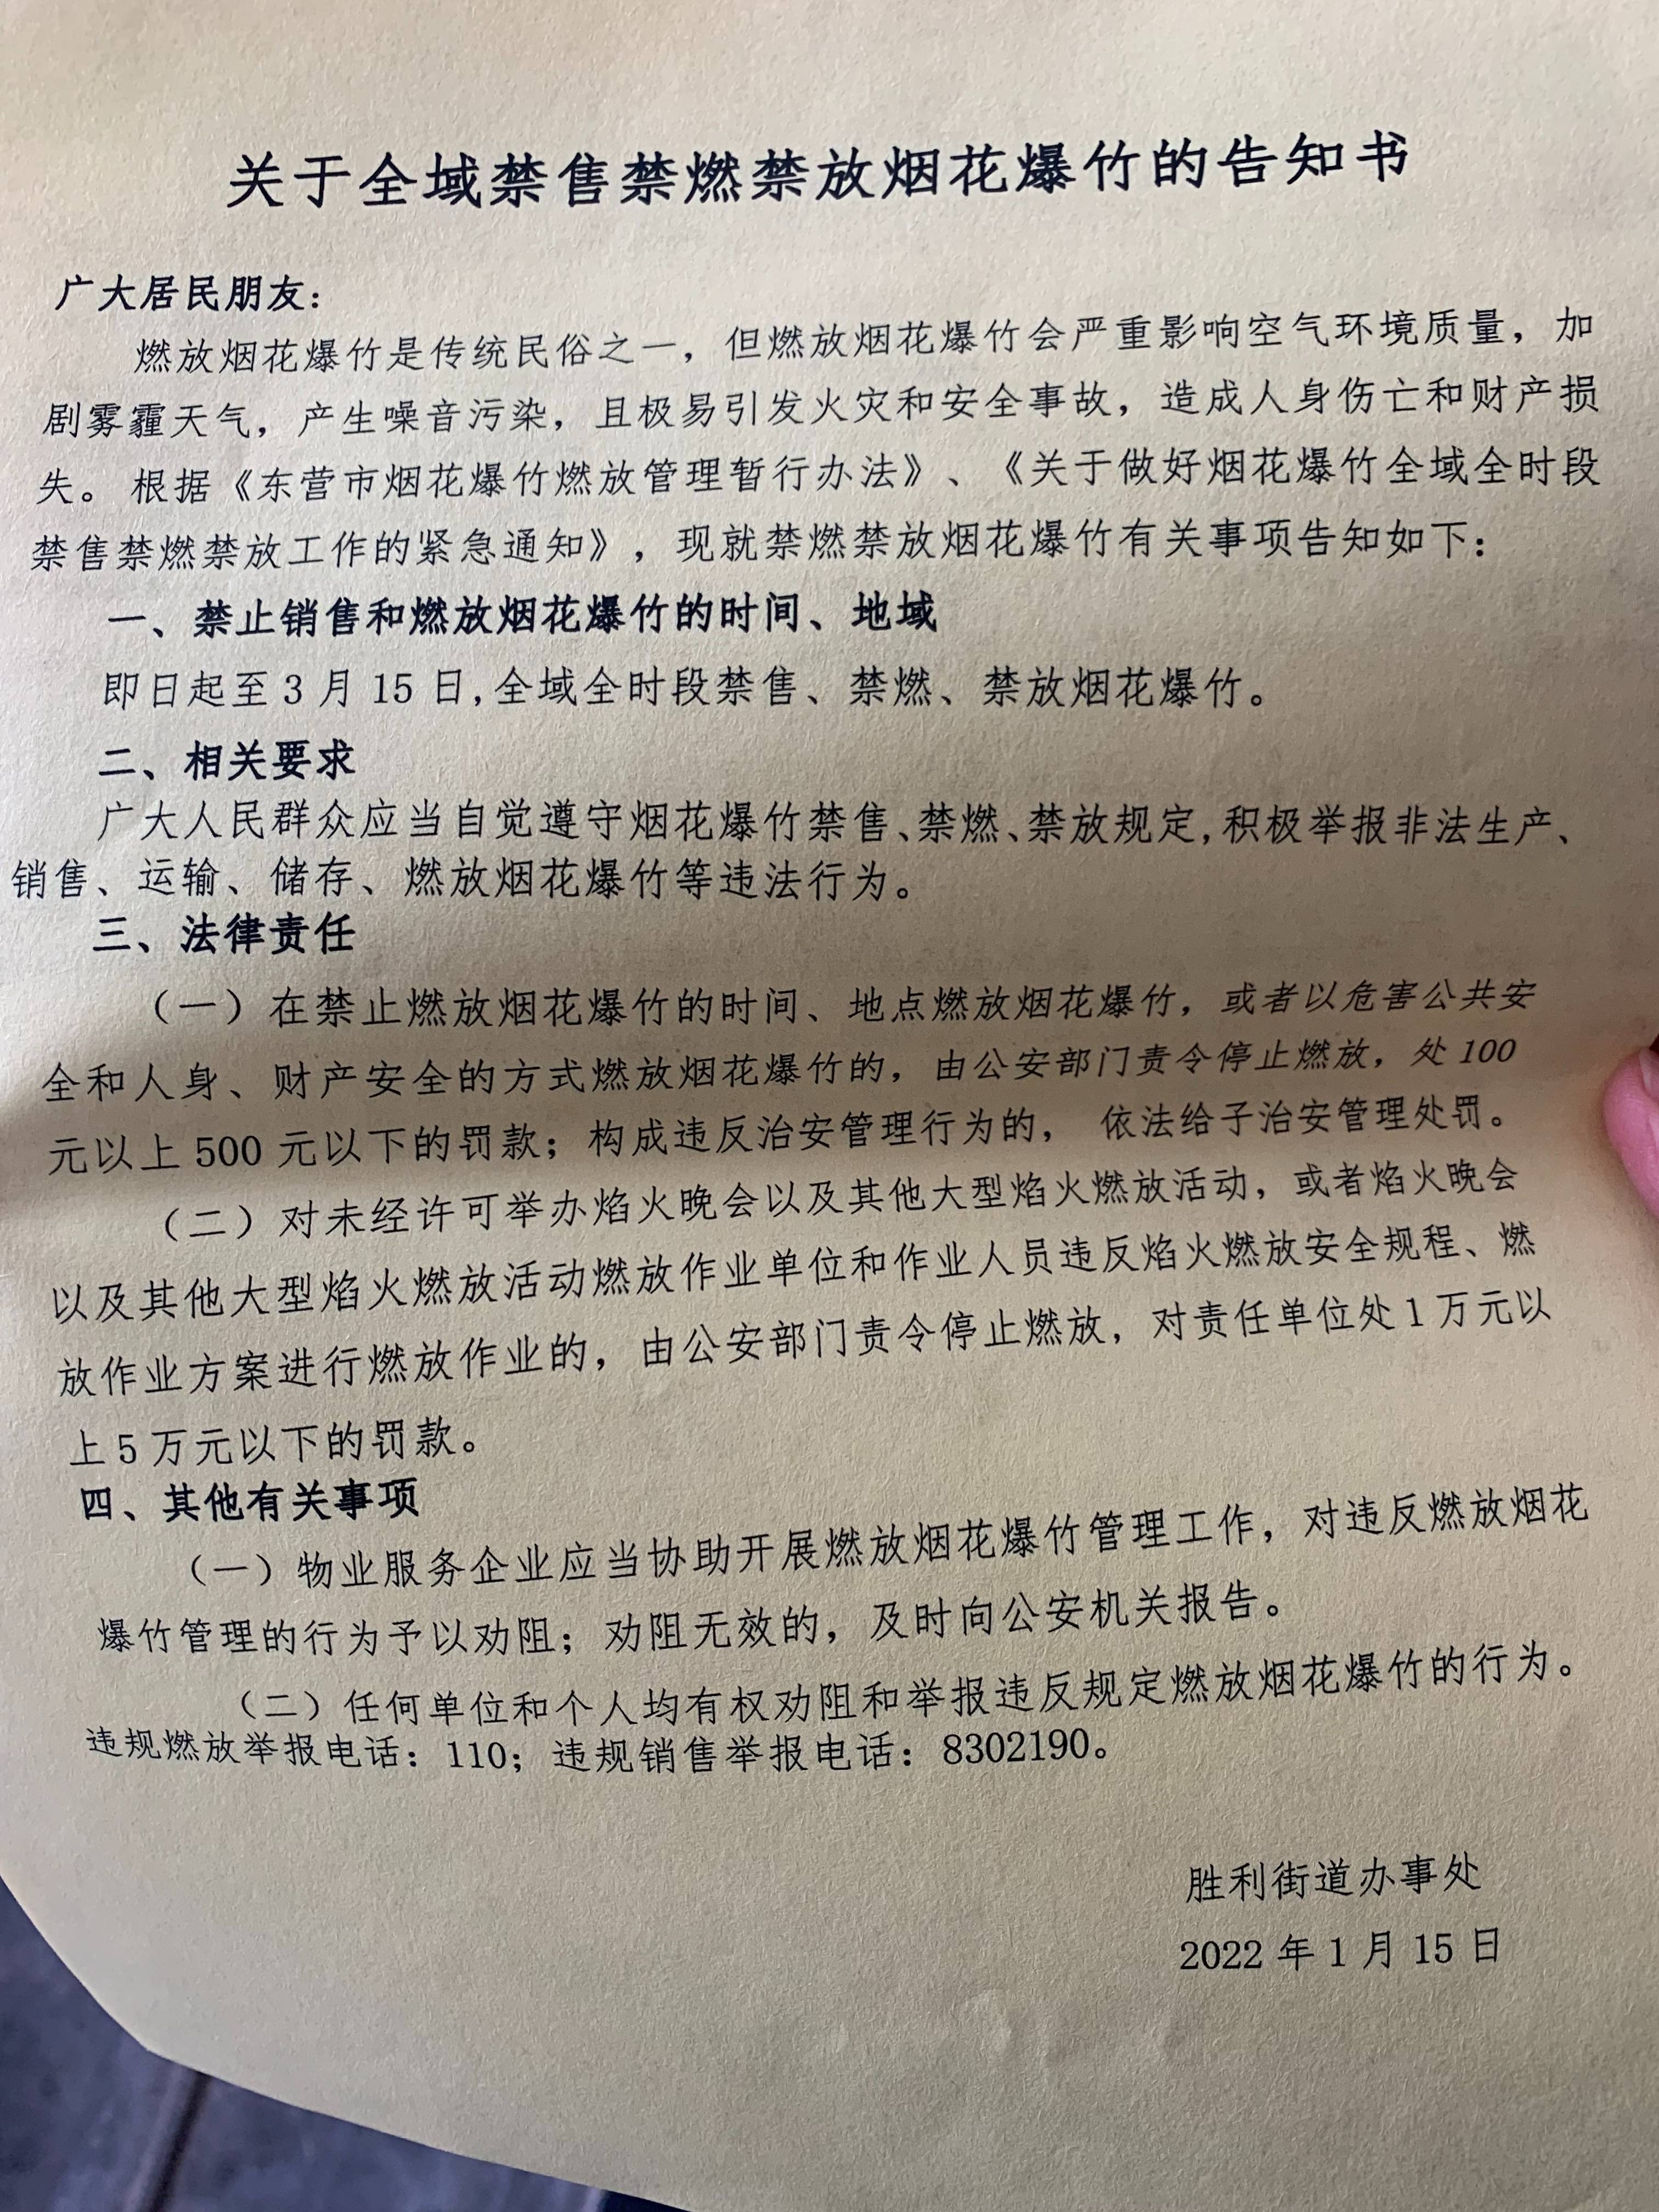 关于全域禁售禁燃禁放烟花爆竹的告知书
广大居民朋友：
燃放烟花爆竹是传统民俗之一，但燃放烟花爆竹会严重影响空气环境质量，加
剧雾霾天气，产生噪音污染，且极易引发火灾和安全事故，造成人身伤亡和财产损
失。根据《东营市烟花爆竹燃放管理暂行办法》、《关于做好烟花爆竹全域全时段
禁售禁燃禁放工作的紧急通知》，现就禁燃禁放烟花爆竹有关事项告知如下：
一、禁止销售和燃放烟花爆竹的时间、地域
即日起至3月15日,全域全时段禁售、禁燃、禁放烟花爆竹。
二、相关要求
广大人民群众应当自觉遵守烟花爆竹禁售、禁燃、禁放规定,积极举报非法生产、
销售、运输、储存、燃放烟花爆竹等违法行为。
三、法律责任
（一）在禁止燃放烟花爆竹的时间、地点燃放烟花爆竹，或者以危害公共安
全和人身、财产安全的方式燃放烟花爆竹的，由公安部门责令停止燃放，处100
元以上500元以下的罚款；构成违反治安管理行为的， 依法给子治安管理处罚。
（二）对未经许可举办焰火晚会以及其他大型焰火燃放活动，或者焰火晚会
以及其他大型焰火燃放活动燃放作业单位和作业人员违反焰火燃放安全规程、燃
放作业方案进行燃放作业的，由公安部门责令停止燃放，对责任单位处1万元以
上5万元以下的罚款。
四、其他有关事项
（一）物业服务企业应当协助开展燃放烟花爆竹管理工作，对违反燃放烟花
爆竹管理的行为予以劝阻；劝阻无效的，及时向公安机关报告。
（二）任何单位和个人均有权劝阻和举报违反规定燃放烟花爆竹的行为。
违规燃放举报电话：110；违规销售举报电话：8302190。
胜利街道办事处
2022年1月15日